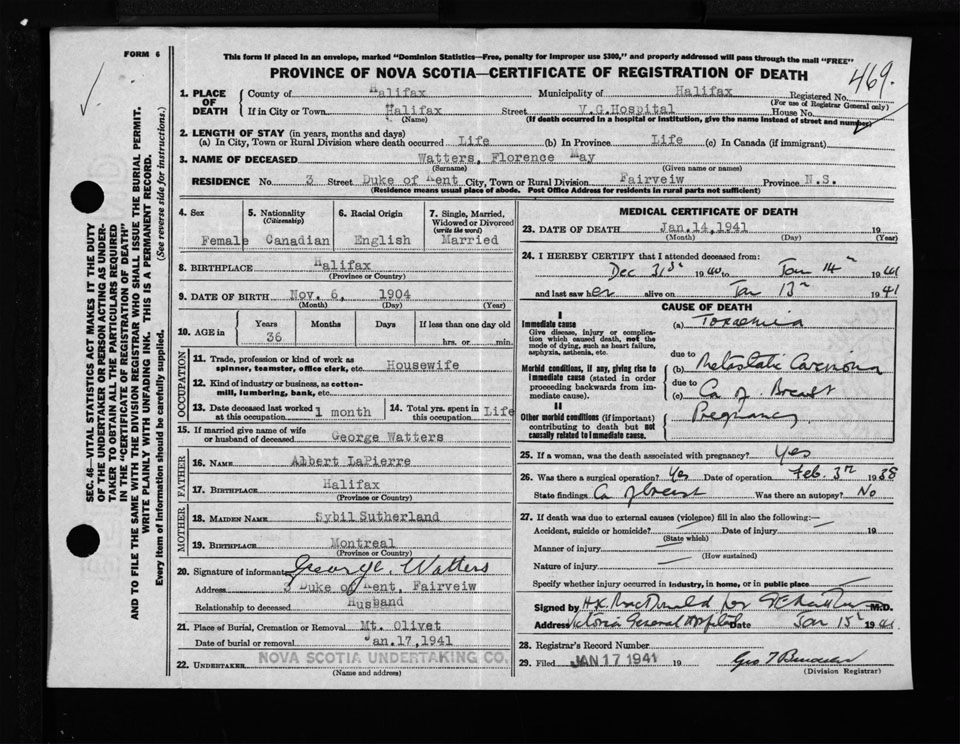 FORM 6
This form if placed in an envelope, marked "Dominion Statistics—Free, penalty for improper use $300," and properly addressed will pass through the mail "FREE"
PROVINCE OF NOVA SCOTIA—CERTIFICATE OF REGISTRATION OF DEATH
469.
1. PLACE OF DEATH { County of Halifax Municipality of Halifax Registered No.
(For use of Registrar General only)
If in City or Town Halifax Street V.G.Hospital House No.
(Name) (If death occurred in a hospital or institution, give the name instead of street and number)
2. LENGTH OF STAY (in years, months and days)
(a) In City, Town or Rural Division where death occurred Life (b) In Province Life (c) In Canada (if immigrant)
3. NAME OF DECEASED Watters, Florence May
(Surname) (Given name or names)
RESIDENCE No. 3 Street Duke of Kent City, Town or Rural Division Fairveiw Province N.S.
(Residence means usual place of abode. Post Office Address for residents in rural parts not sufficient)
4. Sex Female
5. Nationality (Citizenship) Canadian
6. Racial Origin English
7. Single, Married, Widowed or Divorced (write the word) Married
8. BIRTHPLACE Halifax
(Province or Country)
9. DATE OF BIRTH Nov. 6, 1904
(Month) (Day) (Year)
10. AGE in Years Months Days If less than one day old
36 hrs. or min.
OCCUPATION
11. Trade, profession or kind of work as spinner, teamster, office clerk, etc. Housewife
12. Kind of industry or business, as cotton-mill, lumbering, bank, etc.
13. Date deceased last worked at this occupation 1 month
14. Total yrs. spent in this occupation Life
15. If married give name of wife or husband of deceased George Watters
FATHER
16. NAME Albert LaPierre
17. BIRTHPLACE Halifax
(Province or Country)
MOTHER
18. MAIDEN NAME Sybil Sutherland
19. BIRTHPLACE Montreal
(Province or Country)
20. Signature of informant George Watters
Address 3 Duke of Kent, Fairveiw
Relationship to deceased Husband
21. Place of Burial, Cremation or Removal Mt. Olivet
Date of burial or removal Jan.17,1941
22. UNDERTAKER NOVA SCOTIA UNDERTAKING CO.
(Name and address)
MEDICAL CERTIFICATE OF DEATH
23. DATE OF DEATH Jan.14,1941 19
(Month) (Day) (Year)
24. I HEREBY CERTIFY that I attended deceased from:
Dec 31st 1940 to Jan 14th 1941
and last saw her alive on Jan 13th 1941
CAUSE OF DEATH
I
Immediate cause
Give disease, injury or complication which caused death, not the mode of dying, such as heart failure, asphyxia, asthenia, etc.
(a) Toxaemia
due to
Morbid conditions, if any, giving rise to immediate cause (stated in order proceeding backwards from immediate cause).
(b) Metastatic Carcinoma
due to
(c) Ca of Breast
II
Other morbid conditions (if important) contributing to death but not causally related to immediate cause.
Pregnancy
25. If a woman, was the death associated with pregnancy? Yes
26. Was there a surgical operation? Yes Date of operation Feb. 3rd 1938
State findings Ca of breast Was there an autopsy? No
27. If death was due to external causes (violence) fill in also the following:—
Accident, suicide or homicide? Date of injury 19
(State which)
Manner of injury
(How sustained)
Nature of injury
Specify whether injury occurred in industry, in home, or in public place
Signed by H.K. MacDonald for M.D.
Address Victoria General Hospital Date Jan 15th 1941
28. Registrar's Record Number
29. Filed JAN 17 1941 19
(Division Registrar)
SEC. 46—VITAL STATISTICS ACT MAKES IT THE DUTY
OF THE UNDERTAKER OR PERSON ACTING AS UNDER-
TAKER TO OBTAIN ALL THE PARTICULARS REQUIRED
IN THE "CERTIFICATE OF REGISTRATION OF DEATH"
AND TO FILE THE SAME WITH THE DIVISION REGISTRAR WHO SHALL ISSUE THE BURIAL PERMIT.
WRITE PLAINLY WITH UNFADING INK. THIS IS A PERMANENT RECORD.
Every item of information should be carefully supplied. (See reverse side for instructions.)